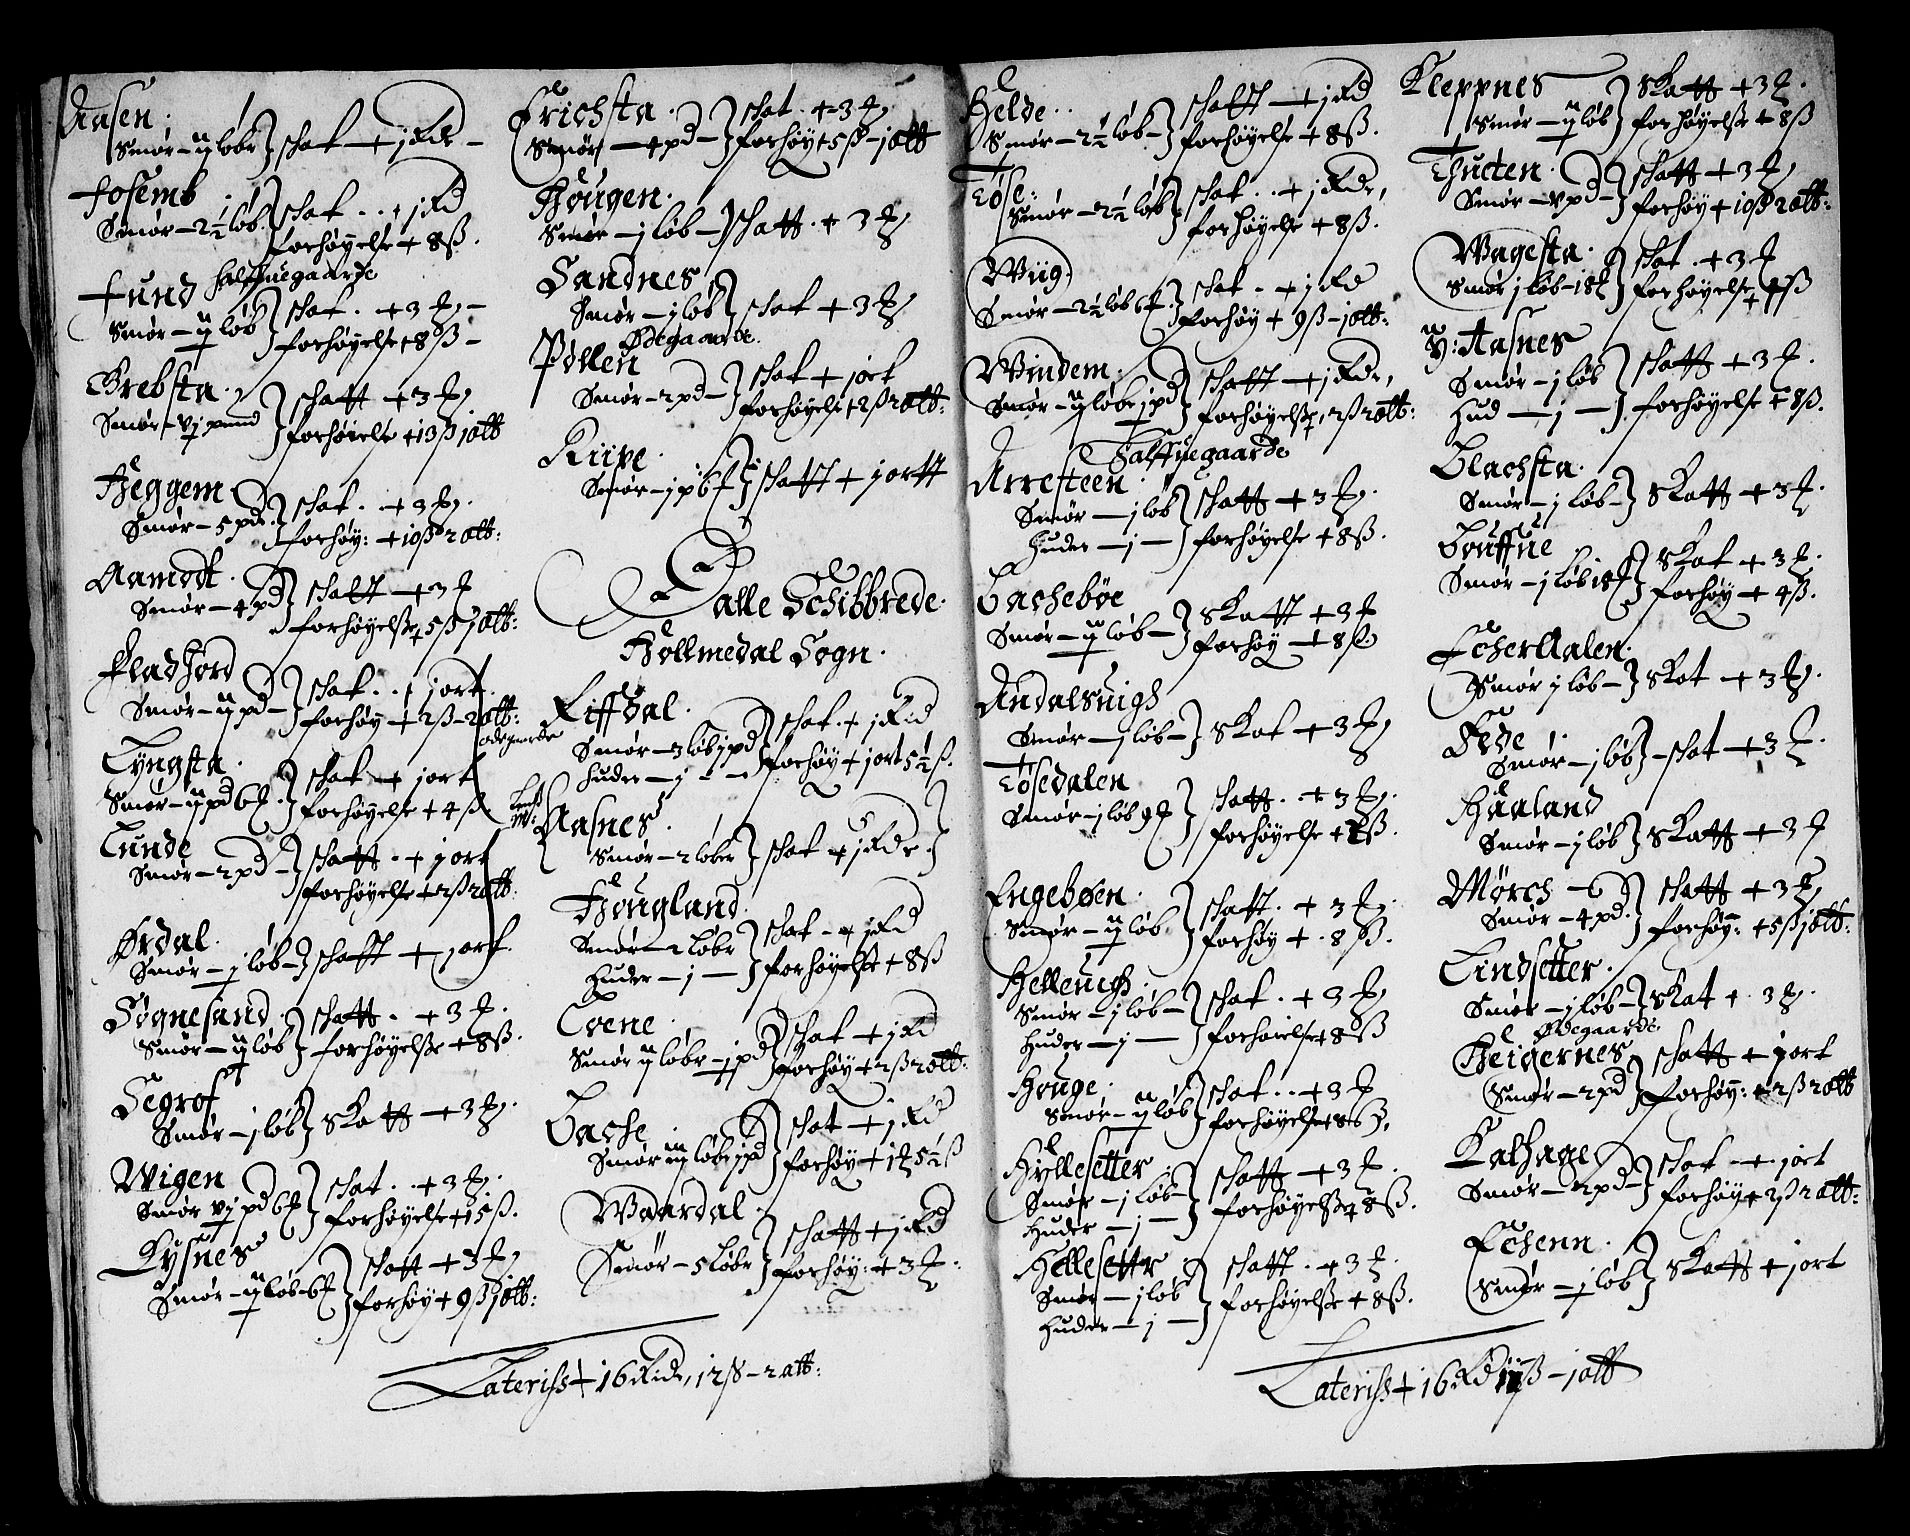 Aasen.
Smør – ij løbr } skat + j Rdr –
Fosemb.
Smør – 2½ løb. } skat . . + j Rd
forhøyelse + 8ß.
halffuegaarde
Fund
Smør – ij løb } skat . + 3 ƶ –
forhøyelse + 8ß –
Grebsta.
Smør – vj pund } skatt + 3 ƶ
forhøielse + 13ß j alb
Heggem
Smør – 5 pdr. } skat . + 3 ƶ.
forhøy: + 10ß 2 alb:
Aamodt.
Smør – 4 pd } skatt + 3 ƶ
forhøyelse + 5ß j alb:
Fladhiord
Smør – ij pd – } skat . . + j ort.
forhøy + 2ß – 2 alb:
ødegaarde
Lyngsta.
Smør – ij pd 6 ƶ. } skat + j ort
forhøyelse + 4ß
Lunde
Smør – 2 pd – } skatt . + j ort
forhøyelse + 2ß 2 alb:
Ørdal.
Smør – j løb – } skatt + j ort.
Søgnesand.
Smør – ij løb } skatt . + 3 ƶ.
forhøyelse + 8ß.
Segrof
Smør – j løb } skatt + 3 ƶ.
Wigen
Smør vj pd 6 ƶ } skat . . + 3 ƶ.
forhøyelse + 15ß.
Kysnes
Smør – ij løb – 6 ƶ } skatt + 3 ƶ
forhøy + 9ß j alb:
Erichsta.
Smør – 4 pd – } skat . + 3 ƶ.
forhøy + 5ß – j alb
Hougen.
Smør – j løb – } skatt . + 3 ƶ
Sandnes
Smør – j løb } skat + 3 ƶ
Ødegaarde.
Pøllen
Smør – 2 pd – } skat + j ort
forhøyelse + 2ß 2 alb:
Kiipe.
Smør – j p 6 ƶ } skatt + j ortt
Dalle Schibbrede.
Höllmedal Sogn.
Riffdal.
Smør – 3 løb j pd } skat . + j Rd
huder – j – – forhøy + j ort 5½ß.
Aasnes.
Smør – 2 løber } skat + j Rdr. }
Hougland.
Smør – 2 løbr } skat – + j Rd
Huder – j – forhøyelse + 8ß
Evene.
Smør ij løbr – j pd } skat + j Rd
forhøy + 2ß 2 alb:
Bache.
Smør iij løbr j pd } skat + j Rd
forhøy + 1 ƶ 5½ß
Waardal.
Smör – 5 løbr } skatt + j Rd
forhøy: + 3 ƶ:
Lateriss + 16 Rdr, 12ß – 2 alb:
Helde.
Smør – 2½ løb – } skatt + j Rd
forhøyelse + 8ß.
Tøse.
Smør – 2½ løb } skat . . + j Rdr,
forhøyelse + 8ß.
Wiig.
Smør – 2½ løb 6 ƶ. } skat . + j Rd
forhøy + 9ß – j alb:
Windem.
Smør – ij løbr j pd } skatt + j Rdr,
forhøyelse + 2ß 2 alb:
Halffuegaarde
Arresteen.
Smør – j løb } skatt + 3 ƶ.
Huder – j – forhøyelse + 8ß.
Bachebøe
Smør – ij løb – } skatt + 3 ƶ
forhøy + 8ß
Andalsuigh
Smør – j løb – } skat + 3 ƶ
Tøsedalen
Smør – j løb 9 ƶ } skatt . + 3 ƶ.
forhøyelse + ß.
Engebøen.
Smør – ij løb. } skatt . + 3 ƶ.
forhøy + . 8ß.
Helleuigh.
Smør – j løb – } skat . + 3 ƶ
Huder – j – forhøielse + 8ß
Houge.
Smør – ij løb } skat . . + 3 ƶ
forhøyelse + 8ß.
Hyllesetter
Smør – j løb – } skatt + 3 ƶ.
Huder – j – forhøyelse + 8ß.
Hellesettr
Smør – j løb } skatt . + 3 ƶ.
Huder – j – forhøyelse + 8ß.
Kleppnes
Smør – ij løb } skatt + 3 ƶ.
forhøyelse + 8ß
Thucten.
Smør – v pd – } skatt + 3 ƶ
forhøy + 10ß 2 alb:
Wagesta.
Smør j løb – 18 ƶ } skat . + 3 ƶ
forhøyelse + 4ß
Y: Aasnes
Smør – j løb } skatt + 3 ƶ.
Hud – j – forhøyelse + 8ß.
Blachsta.
Smør – j løb – } skatt + 3 ƶ.
Bouffue
Smør – j løb 18 ƶ } skat + 3 ƶ.
forhøy + 4ß.
EcherAalen.
Smør j løb – } skat + 3 ƶ.
Fede.
Smør – j løb } – skat + 3 ƶ.
Haaland
Smør – j løb } skatt + 3 ƶ
Mørch –
Smør – 4 pd. } skatt + 3 ƶ
forhøy: + 5ß j alb:
Lindsetter.
Smør – j løb – } skat + . 3 ƶ.
Ødegaarde.
Heigernes
Smør – 2 pd } skatt + j ort
forhøy: + 2ß 2 alb
Kalhage
Smør – 2 pd – } skat + j ort
forhøy + 2ß 2 alb:
Echenn.
Smør – j løb } skatt + j ort
Lateriss + 16 Rd ß – j alb